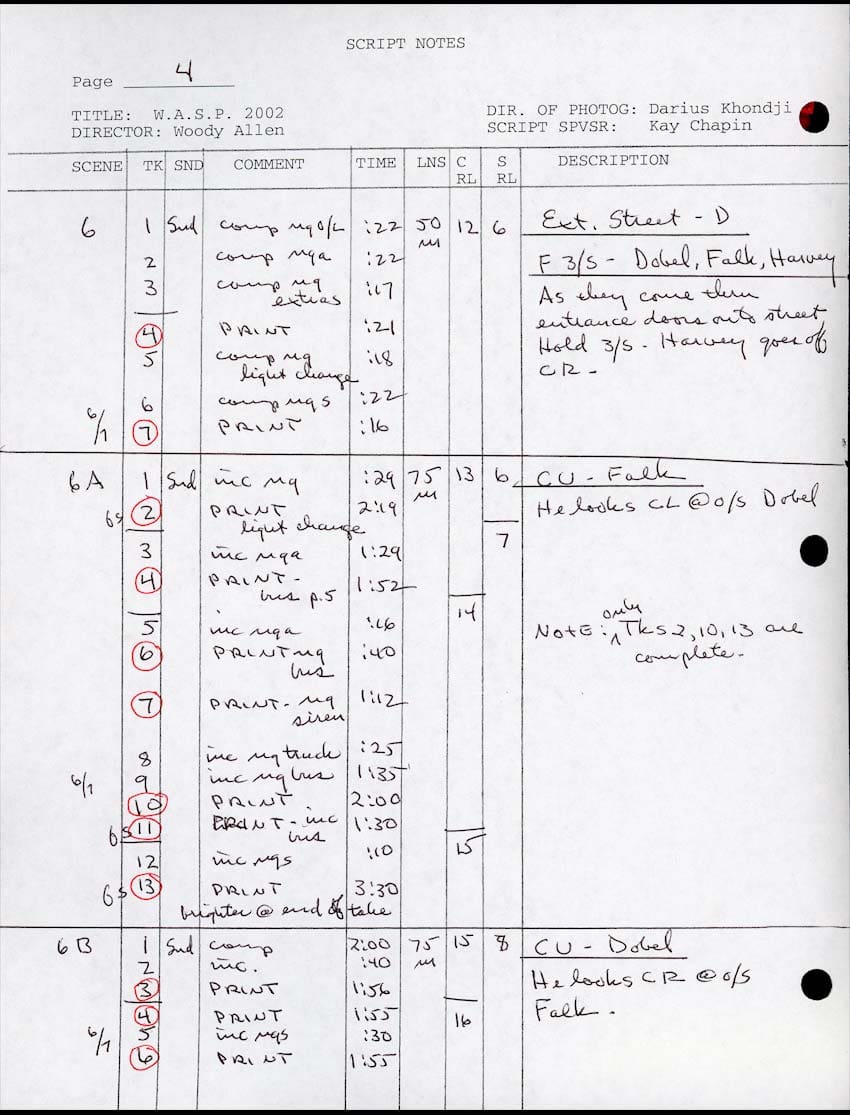 SCRIPT NOTES
Page 4
TITLE: W.A.S.P. 2002
DIR. OF PHOTOG: Darius Khondji
DIRECTOR: Woody Allen
SCRIPT SPVSR: Kay Chapin
SCENE TK SND COMMENT TIME LNS C RL S RL DESCRIPTION
6 1 Snd comp ng O/L :22 50 m 12 6 Ext. Street - D
2 comp nga :22 F 3/S - Dobel, Falk, Harvey
3 comp ng extras :17 As they come thru
entrance doors onto street
4 PRINT :21
Hold 3/S. Harvey goes off
5 comp ng light change :18
CR.
6 comp ngs :22
6/7 7 PRINT :16
6A 1 Snd inc ng :29 75 m 13 6 CU - Falk
6s 2 PRINT light change 2:19 He looks CL @ o/s Dobel
7
3 inc nga 1:29
4 PRINT - bus p.5 1:52
14
5 inc nga :16 NOTE: only Tks 2, 10, 13 are
6 PRINT ng bus :40 complete.
7 PRINT - ng siren 1:12
8 inc ng truck :25
6/7 9 inc ng bus 1:35
10 PRINT 2:00
6s 11 PRINT - inc bus 1:30
15
12 inc ngs :10
6s 13 PRINT 3:30
brighter @ end of take
6B 1 Snd comp 2:00 75 m 15 8 CU - Dobel
2 inc. :40
3 PRINT 1:56 He looks CR @ o/s
4 PRINT 1:55 16 Falk.
6/7 5 inc ngs :30
6 PRINT 1:55